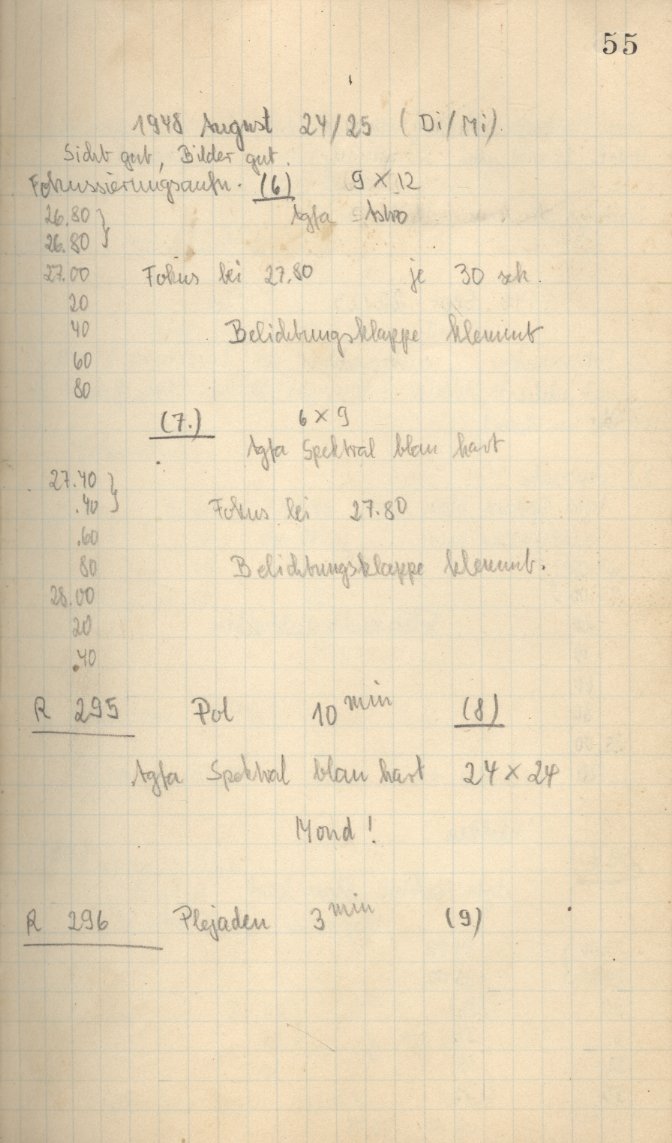 55
1948 August 24/25 (Di/Mi).
Sicht gut, Bilder gut.
Fokussierungsaufn. (6) 9 × 12
26.80 } Agfa Astro
26.80
27.00 Fokus bei 27.80 je 30 sek.
20
40 Belichtungsklappe klemmt
60
80
(7.) 6 × 9
Agfa Spektral blau hart
27.40 }
.40 Fokus bei 27.80
.60
80 Belichtungsklappe klemmt.
28.00
20
.40
R 295 Pol 10 min (8)
Agfa Spektral blau hart 24 × 24
Mond!
R 296 Plejaden 3 min (9)